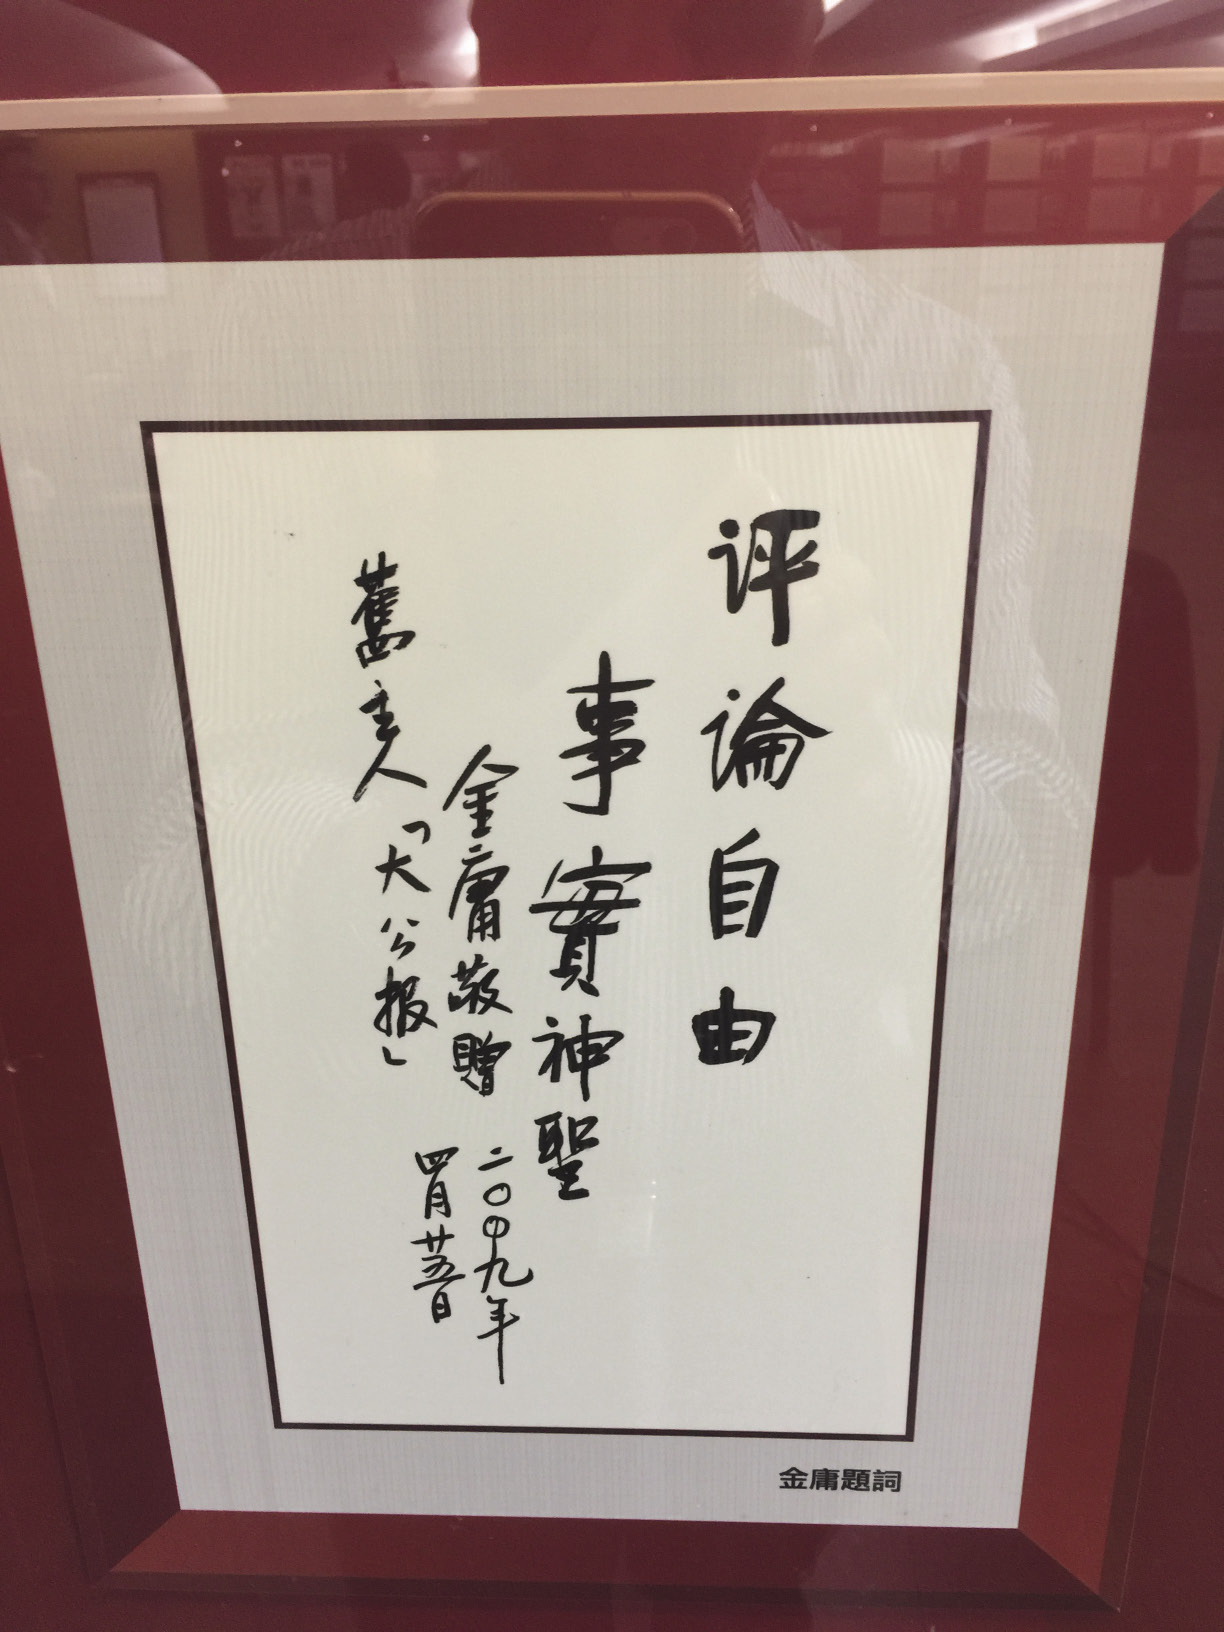 评論自由
事實神聖
金庸敬贈
二〇〇九年
四月廿五日
舊主人「大公报」
金庸題詞